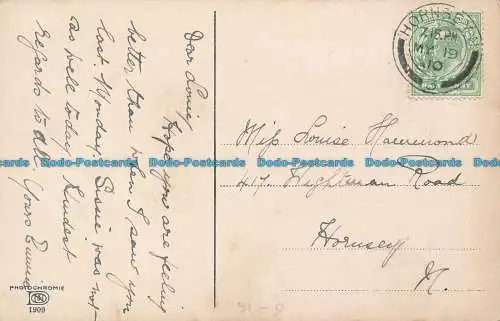 Dear Louie
Hope you are feeling
better than when I saw you
last Monday. Sissie was not
as well today. Kindest
regards to all. Yours Emmie
HORNSEY
7.15 PM
MY 19
10
Miss Louise Hammond
417. Hightman Road
Hornsey
N.
Do-Postcards Do-Postcards Do-Postcards Do-Postcards Do-Postcards Do-Postcards
PHOTOCHROMIE
1909